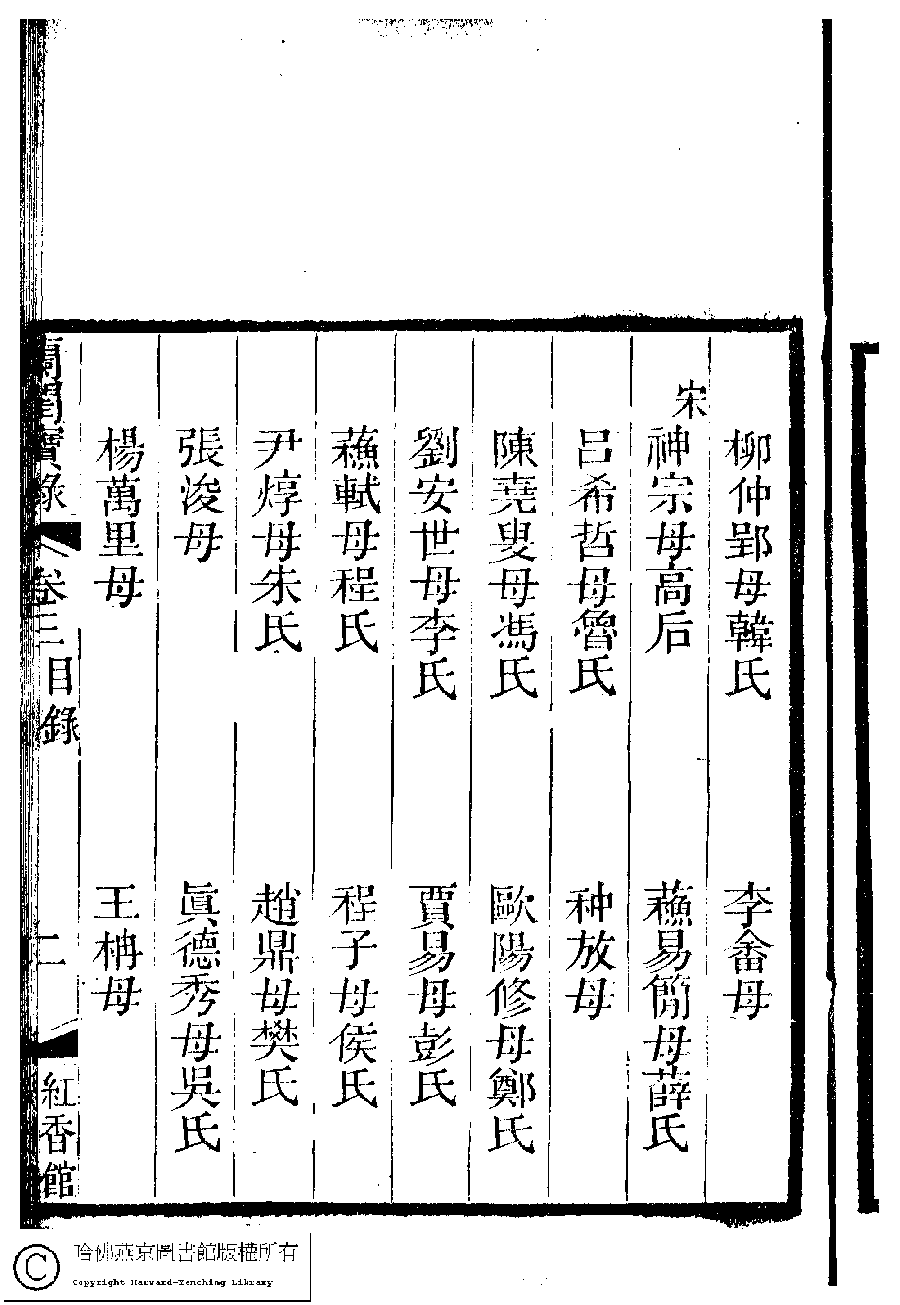 柳仲郢母韓氏　李畬母
宋
神宗母高后　蘓易簡母薛氏
呂希哲母魯氏　种放母
陳堯叟母馮氏　歐陽修母鄭氏
劉安世母李氏　賈易母彭氏
蘓軾母程氏　程子母侯氏
尹焞母朱氏　趙鼎母樊氏
張浚母　眞德秀母吳氏
楊萬里母　王柟母
蘭閨寶錄　卷三目錄　二　紅香館
哈佛燕京圖書館版權所有
Copyright Harvard-Yenching Library